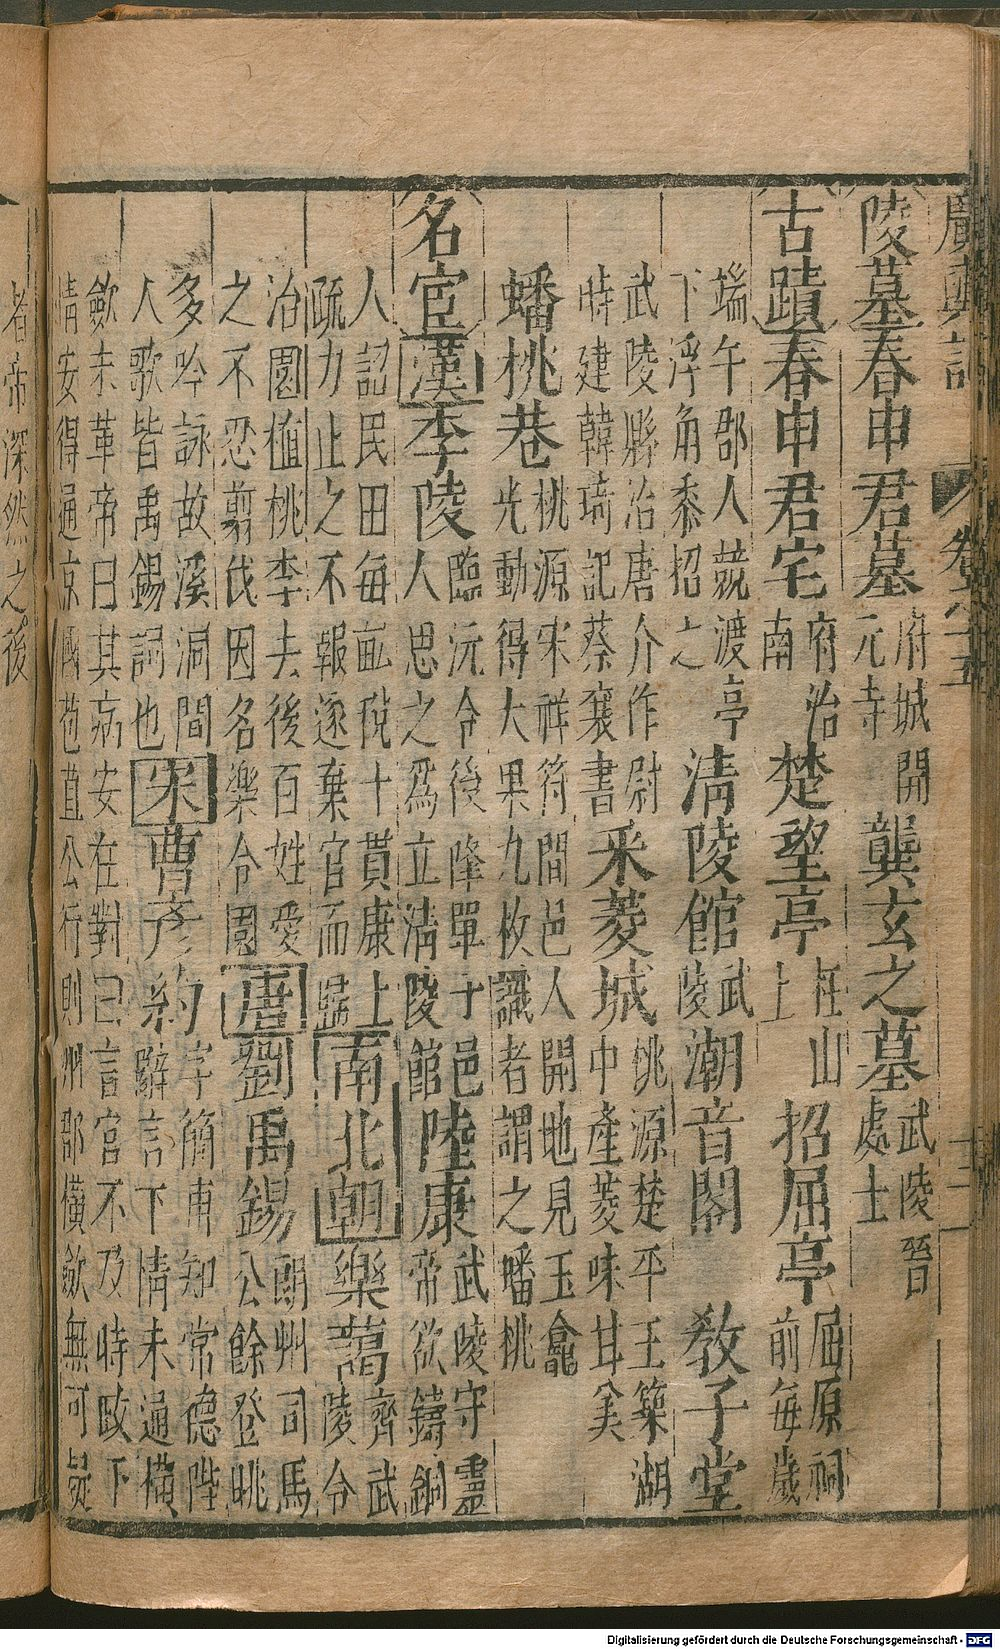 廣輿記 卷十五 十二
陵墓 春申君墓 府城開元寺 龔玄之墓 武陵晉處士
古蹟 春申君宅 府治南 楚望亭 在山上 招屈亭 屈原祠前每歲
端午郡人競渡亭下浮角黍招之 清陵館 武陵 潮音閣 教子堂
武陵縣治唐介作尉時建韓琦記蔡襄書 采菱城 桃源楚平王築湖中產菱味甘美
蟠桃巷 桃源宋祥符間邑人開地見玉龕光動得大果九枚識者謂之蟠桃
名宦 漢 李陵 臨沅令後降單于邑人思之爲立清陵館 陸康 武陵守靈帝欲鑄銅
人詔民田每畝稅十貫康上疏力止之不報逐棄官而歸 南北朝 樂藹 齊武陵令
治園植桃李去後百姓愛之不忍翦伐因名樂令園 唐 劉禹錫 朗州司馬公餘登眺
多吟詠故溪洞間人歌皆禹錫詞也 宋 曹彥約 字簡甫知常德陛辭言下情未通橫
歛未革帝曰其病安在對曰言官不及時政下情安得通京國苞苴公行則州郡橫歛無可疑
者帝深然之後
Digitalisierung gefördert durch die Deutsche Forschungsgemeinschaft - DFG